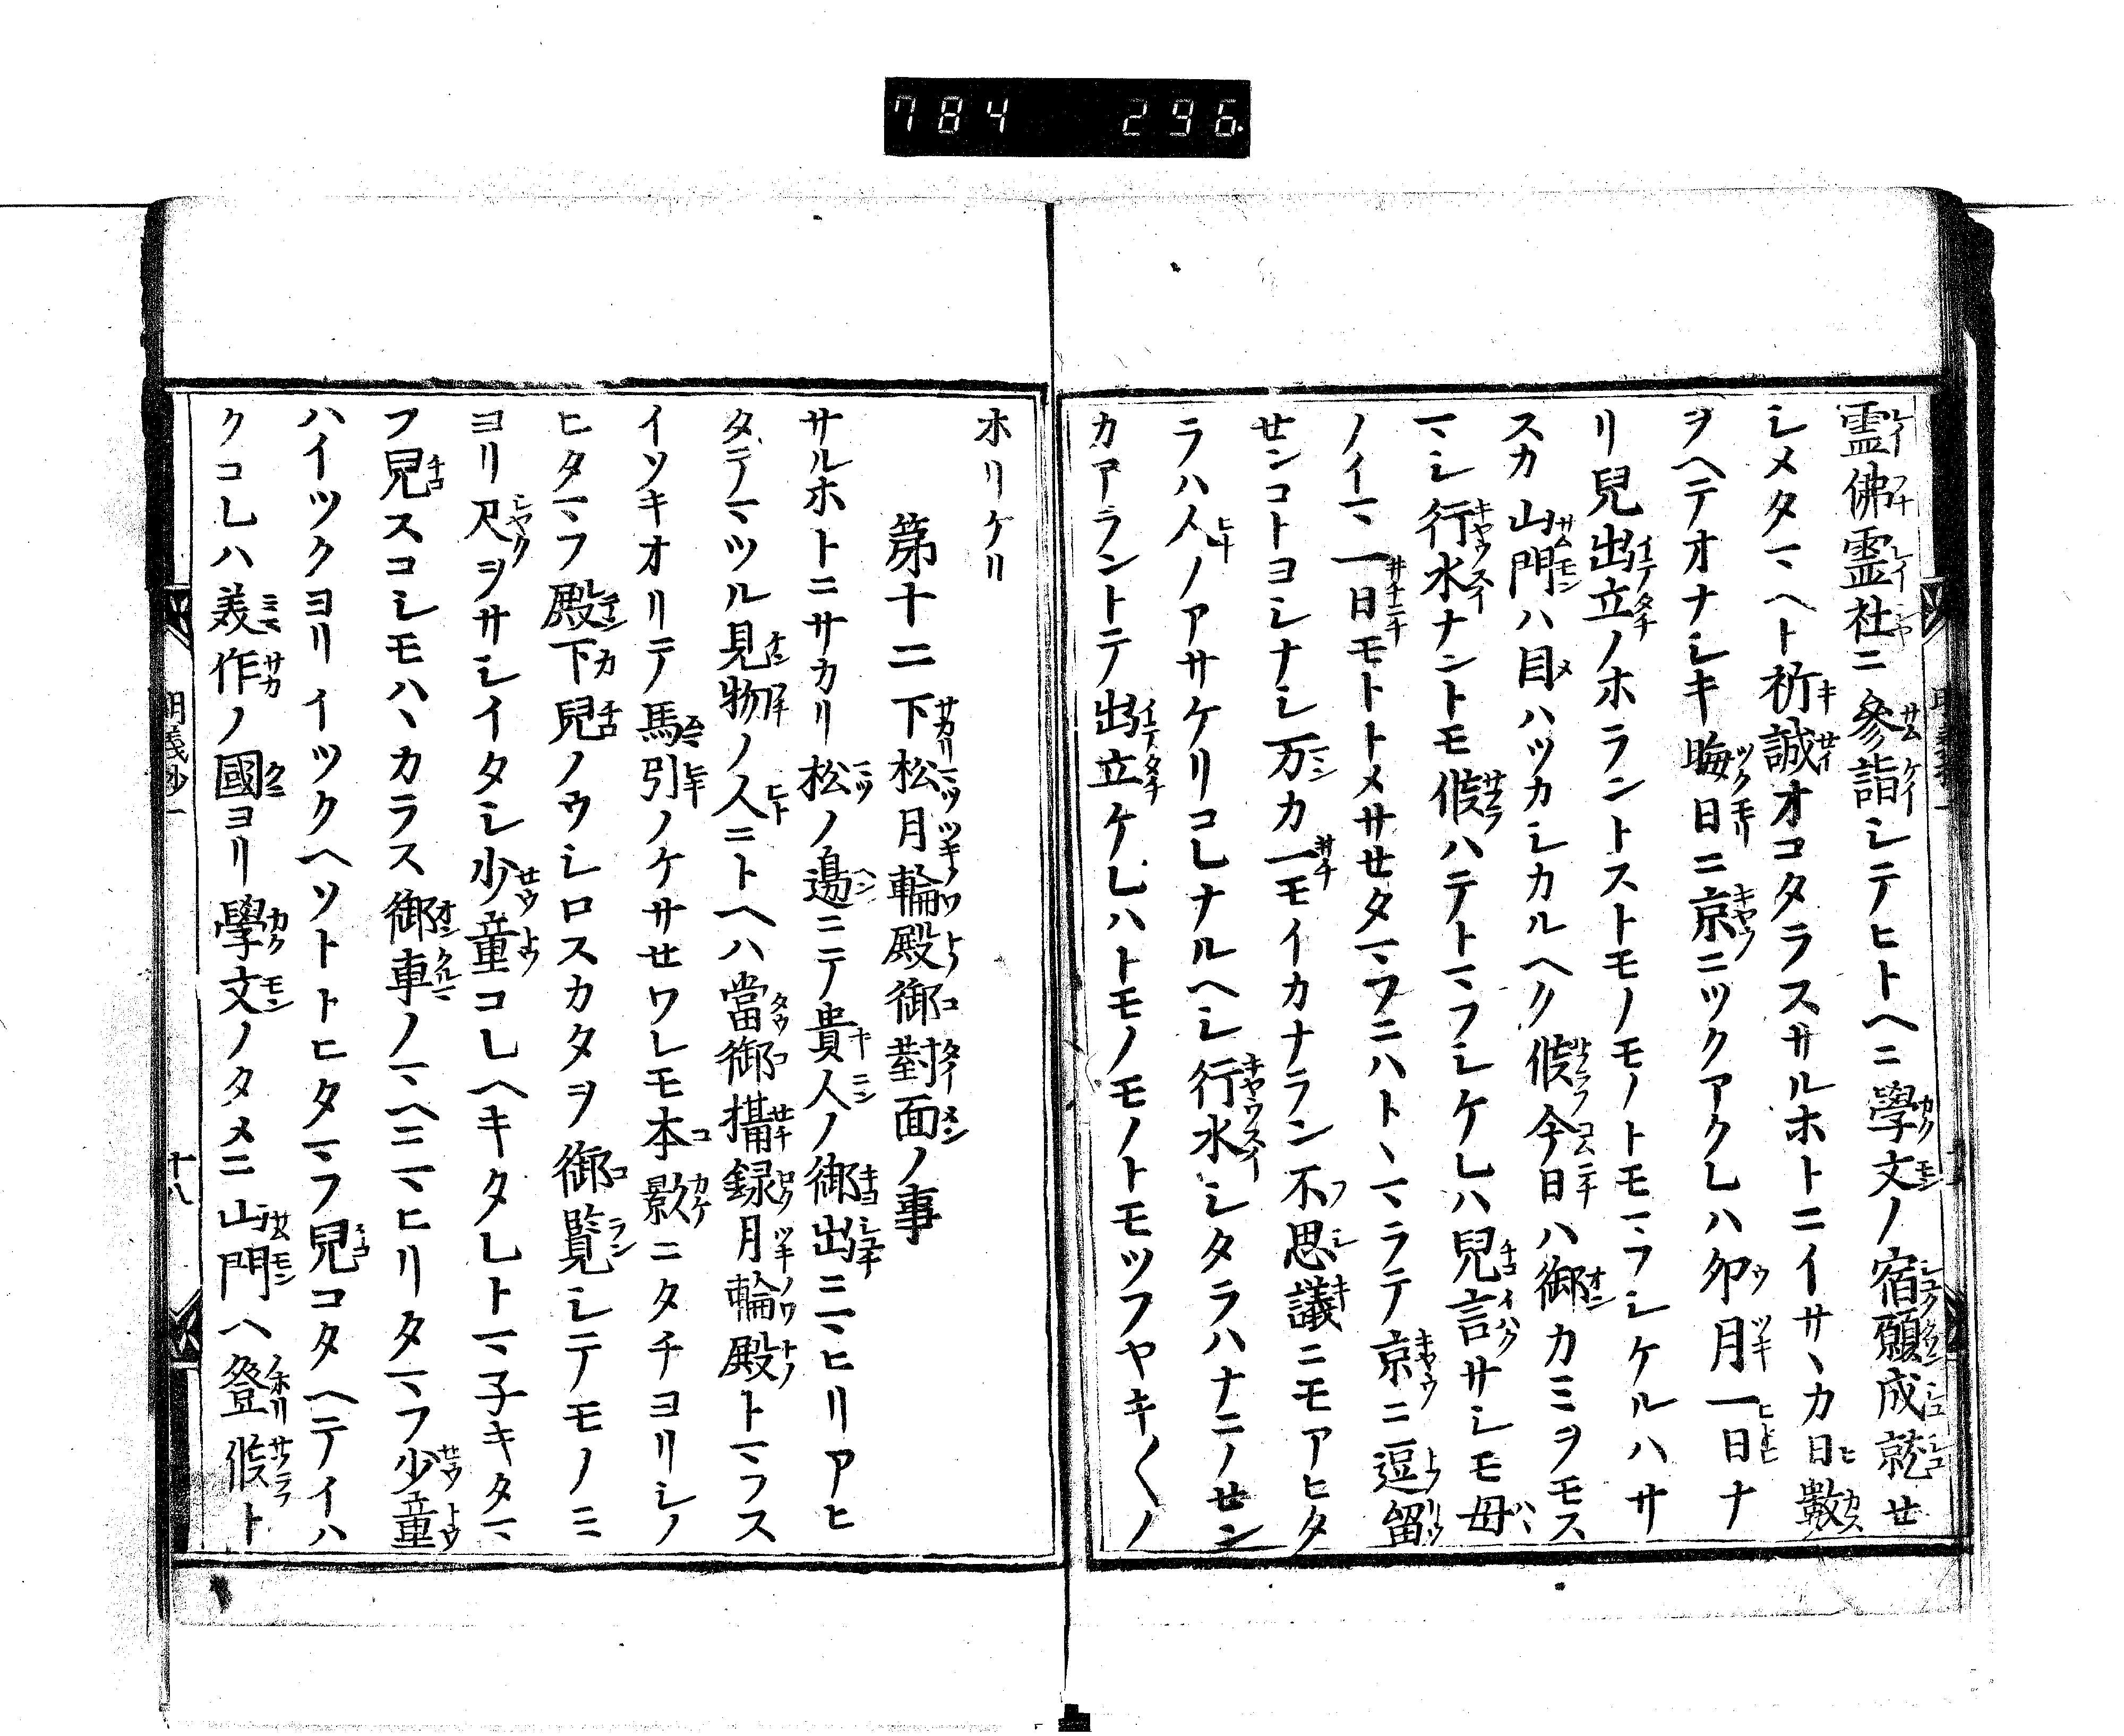 784 296
霊佛霊社ニ參詣シテヒトヘニ學文ノ宿願成就セ
シメタマヘト祈誠オコタラスサルホトニイサヽカ日數
ヲヘテオナシキ晦日ニ京ニツクアクレハ卯月一日ナ
リ兒出立ノホラントストモノモノトモマフシケルハサ
スカ山門ハ目ハツカシカルヘク候今日ハ御カミヲモス
マシ行水ナントモ候ハテトマフシケレハ兒言サシモ母
ノイマ一日モトトメサセタマフニハトヽマラテ京ニ逗留
センコトヨシナシ万カ一モイカナラン不思議ニモアヒタ
ラハ人ノアサケリコレナルヘシ行水シタラハナニノセン
カアラントテ出立ケレハトモノモノトモツフヤキ〱ノ
ホリケリ
第十二下松月輪殿御對面ノ事
サルホトニサカリ松ノ邊ニテ貴人ノ御出ニマヒリアヒ
タテマツル見物ノ人ニトヘハ當御攝録月輪殿トマフス
イソキオリテ馬引ノケサセワレモ木影ニタチヨリシノ
ヒタマフ殿下兒ノウシロスカタヲ御覧シテモノミ
ヨリ尺ヲサシイタシ少童コレヘキタレトマ子キタマ
フ兒スコシモハヽカラス御車ノマヘニマヒリタマフ少童
ハイツクヨリイツクヘソトトヒタマフ兒コタヘテイハ
クコレハ美作ノ國ヨリ學文ノタメニ山門ヘ登候ト
明義抄一
十八